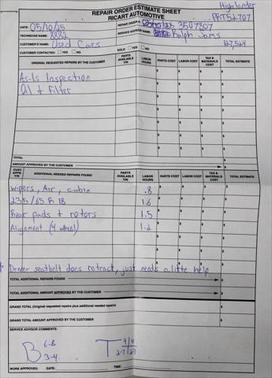 REPAIR ORDER ESTIMATE SHEET
RICART AUTOMOTIVE
Highlander
DATE: 05/10/25
TECHNICIAN NAME:
CUSTOMER'S NAME: Used Cars
CUSTOMER CONTACTED: YES NO
SOLD: YES NO
ORIGINAL REQUESTED REPAIRS BY THE CUSTOMER
PARTS AVAILABLE Y/N
LABOR HOURS
PARTS COST
LABOR COST
TAX & MATERIALS COST
TOTAL ESTIMATE
Inspection
Oil + Filter
TOTAL
AMOUNT APPROVED BY THE CUSTOMER
ADDITIONAL NEEDED REPAIRS FOUND
PARTS AVAILABLE Y/N
LABOR HOURS
PARTS COST
LABOR COST
TAX & MATERIALS COST
TOTAL ESTIMATE
Wipers, Air, cabin .8
235/65 R 18 1.6
Rear pads + rotors 1.5
Alignment (4 wheel)
Driver seatbelt does retract, just needs a little help
TOTAL ADDITIONAL REPAIRS FOUND
TOTAL ADDITIONAL AMOUNT APPROVED BY THE CUSTOMER
GRAND TOTAL (Original requested repairs plus additional needed repairs)
GRAND TOTAL AMOUNT APPROVED BY THE CUSTOMER
SERVICE ADVISOR COMMENTS:
B 6-8
3-4
T
WORK APPROVED BY:
DATE:
TIME: